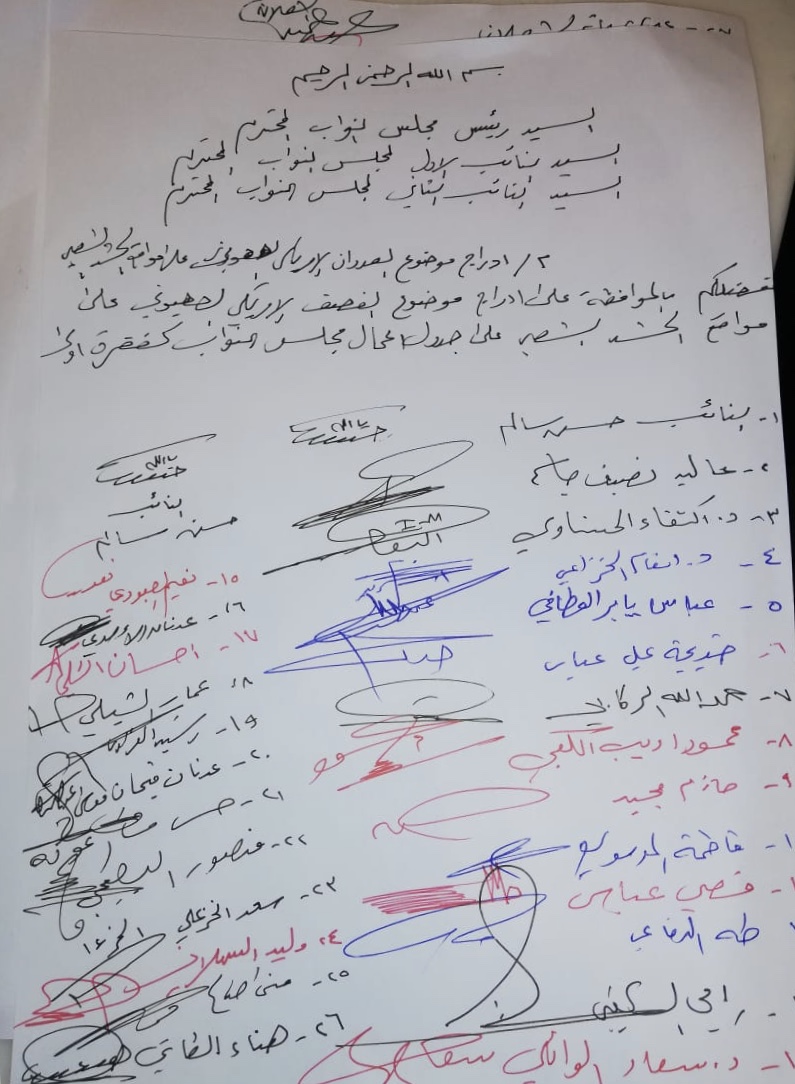 بسم الله الرحمن الرحيم
السيد رئيس مجلس النواب المحترم
السيد النائب الاول لمجلس النواب المحترم
السيد النائب الثاني لمجلس النواب المحترم
م/ ادراج موضوع العدوان الامريكي الصهيوني على مواقع الحشد الشعبي
تفضلكم بالموافقة على ادراج موضوع القصف الامريكي الصهيوني على
مواقع الحشد الشعبي على جدول اعمال مجلس النواب كفقرة اولى
١- النائب حسن سالم
٢- عالية نصيف جاسم
٣- د. اكتفاء الحسناوي
٤- د. انعام الخزاعي
٥- عباس يابر العطافي
٦- خديجة علي عباس
٧- حمد الله الركابي
٨- محمود اديب الكعبي
٩- حازم مجيد
فاطمة
قصي عباس
طه الدفاعي
رامي السكيني
د. سعاد الوائلي
النائب
حسن سالم
١٥- نعيم العبودي
١٦- عدنان
١٧- احسان
١٨- عمار الشبلي
١٩- رشيد
٢٠- عدنان فيحان
٢١- حسن
٢٢- منصور البعيجي
٢٣- سعد الخزعلي
٢٤- وليد السهلاني
٢٥- منى
٢٦- هناء الطائي